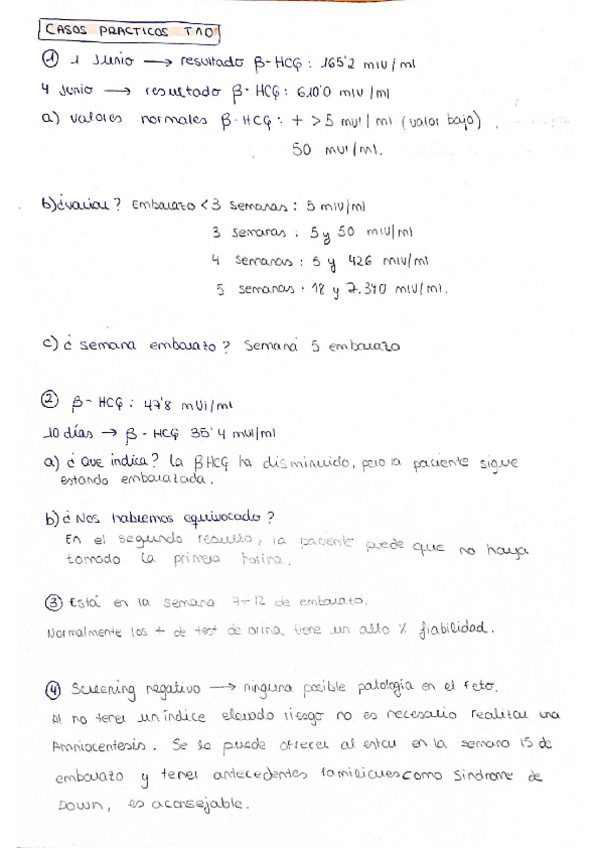 CASOS PRACTICOS TAO
① 1 Junio → resultado β-HCG: 165'2 mIU/ml
4 Junio → resultado β-HCG: 610'0 mIU/ml
a) valores normales β-HCG: + >5 mUI/ml (valor bajo)
50 mUI/ml.
b) ¿varían? Embarazo <3 semanas: 5 mIU/ml
3 semanas: 5 y 50 mIU/ml
4 semanas: 5 y 426 mIU/ml
5 semanas: 18 y 7.340 mIU/ml.
c) ¿semana embarazo? Semana 5 embarazo
② β-HCG: 47'8 mUi/ml
10 días → β-HCG 35'4 mUI/ml
a) ¿Que indica? La βHCG ha disminuido, pero la paciente sigue
estando embarazada.
b) ¿Nos habremos equivocado?
En el segundo resulto, la paciente puede que no haya
tomado la primera horina.
③ Está en la semana 7-12 de embarazo.
Normalmente los + de test de orina tiene un alto % fiabilidad.
④ Screening negativo → ninguna posible patología en el feto.
Al no tener un índice elevado riesgo no es necesario realizar una
Amniocentesis. Se le puede ofrecer al estar en la semana 15 de
embarazo y tener antecedentes familiares como Sindrome de
Down, es aconsejable.